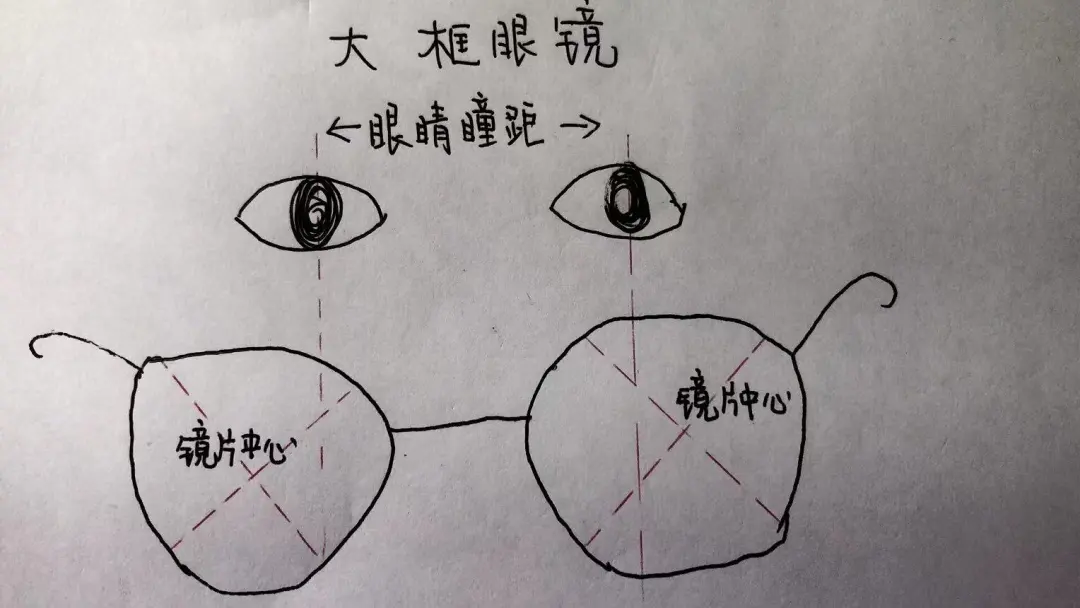 大框眼镜
←眼睛瞳距→
镜片中心
镜片中心